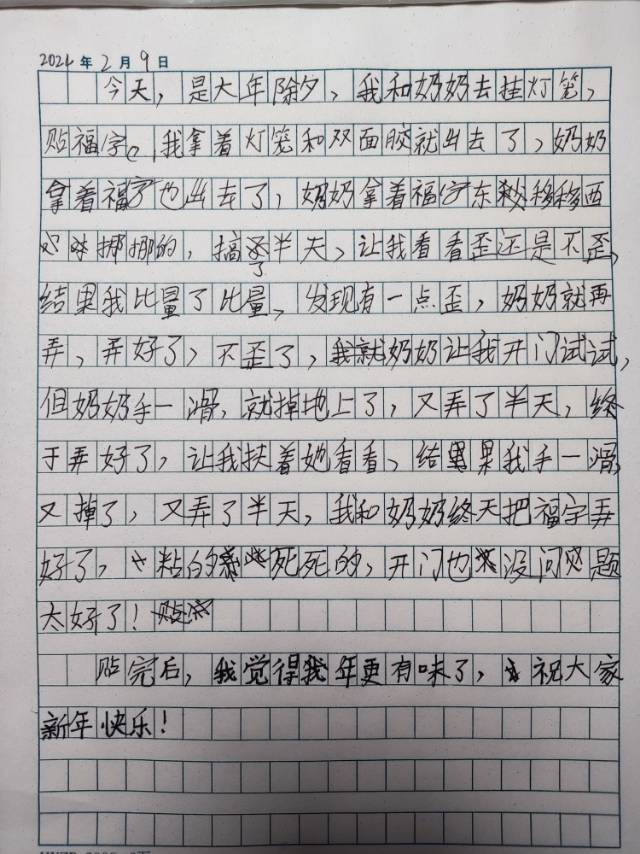 2024年2月9日
今天，是大年除夕，我和奶奶去挂灯笼，
贴福字。我拿着灯笼和双面胶就出去了，奶奶
拿着福字也出去了，奶奶拿着福字东移移西
挪挪的，搞了半天、让我看看歪还是不歪，
结果我比量了比量、发现有一点歪，奶奶就再
弄、弄好了，不歪了，奶奶让我开门试试，
但奶奶手一滑，就掉地上了，又弄了半天，终
于弄好了，让我扶着她看看、结果我手一滑，
又掉了，又弄了半天，我和奶奶终天把福字弄
好了，粘的死死的，开门也没问题
太好了！
贴完后，我觉得我年更有味了，祝大家
新年快乐！